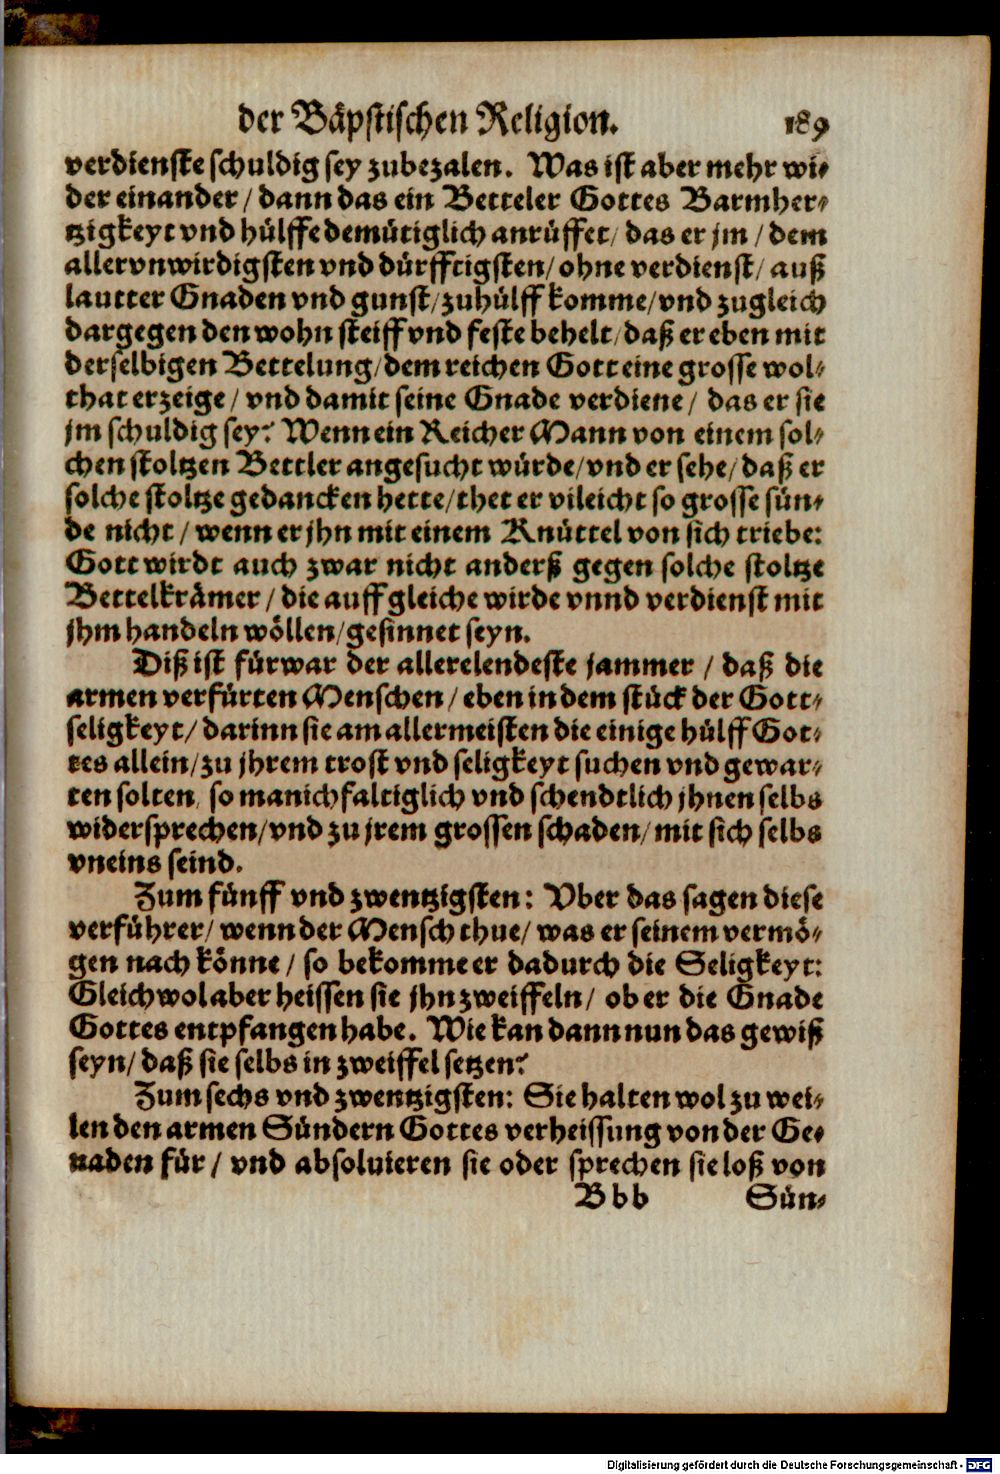 der Bäpstischen Religion. 189
verdienste schuldig sey zubezalen. Was ist aber mehr wi-
der einander / dann das ein Betteler Gottes Barmher-
tzigkeyt vnd hülffe demütiglich anrüffet / das er jm / dem
allervnwirdigsten vnd dürfftigsten / ohne verdienst / auß
lautter Gnaden vnd gunst / zuhülff komme / vnd zugleich
dargegen den wohn steiff vnd feste behelt / daß er eben mit
derselbigen Bettelung / dem reichen Gott eine grosse wol-
that erzeige / vnd damit seine Gnade verdiene / das er sie
jm schuldig sey? Wenn ein Reicher Mann von einem sol-
chen stoltzen Bettler angesucht würde / vnd er sehe / daß er
solche stoltze gedancken hette / thet er vileicht so grosse sün-
de nicht / wenn er jhn mit einem Knüttel von sich triebe:
Gott wirdt auch zwar nicht anderß gegen solche stoltze
Bettelkrämer / die auff gleiche wirde vnnd verdienst mit
jhm handeln wöllen / gesinnet seyn.
Diß ist fürwar der allerelendeste jammer / daß die
armen verfürten Menschen / eben in dem stück der Gott-
seligkeyt / darinn sie am allermeisten die einige hülff Got-
tes allein / zu jhrem trost vnd seligkeyt suchen vnd gewar-
ten solten / so manichfaltiglich vnd schendtlich jhnen selbs
widersprechen / vnd zu jrem grossen schaden / mit sich selbs
vneins seind.
Zum fünff vnd zwentzigsten: Vber das sagen diese
verführer / wenn der Mensch thue / was er seinem vermö-
gen nach könne / so bekomme er dadurch die Seligkeyt:
Gleichwol aber heissen sie jhn zweiffeln / ob er die Gnade
Gottes entpfangen habe. Wie kan dann nun das gewiß
seyn / daß sie selbs in zweiffel setzen?
Zum sechs vnd zwentzigsten: Sie halten wol zu wei-
len den armen Sündern Gottes verheissung von der Ge-
naden für / vnd absoluieren sie oder sprechen sie loß von
Bbb Sün-
Digitalisierung gefördert durch die Deutsche Forschungsgemeinschaft - DFG